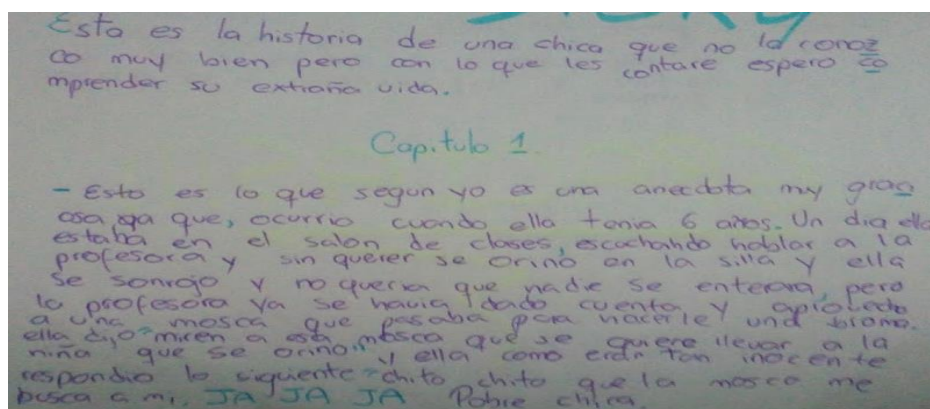 Esta es la historia de una chica que no la conoz
co muy bien pero con lo que les contare espero co
mprender su extraña vida.
Capitulo 1.
- Esto es lo que segun yo es una anecdota muy graci
osa ya que, ocurrio cuando ella tenia 6 años. Un dia ella
estaba en el salon de clases, escuchando hablar a la
profesora y sin querer se orino en la silla y ella
se sonrojo y no queria que nadie se enterara, pero
la profesora ya se havia dado cuenta y
a una mosca que pasaba para hacerle una broma.
ella dijo "miren a esa mosca que se quiere llevar a la
niña que se orino" y ella como era tan inocente
respondio lo siguiente "chito chito que la mosca me
busca a mi. JA JA JA Pobre chica.